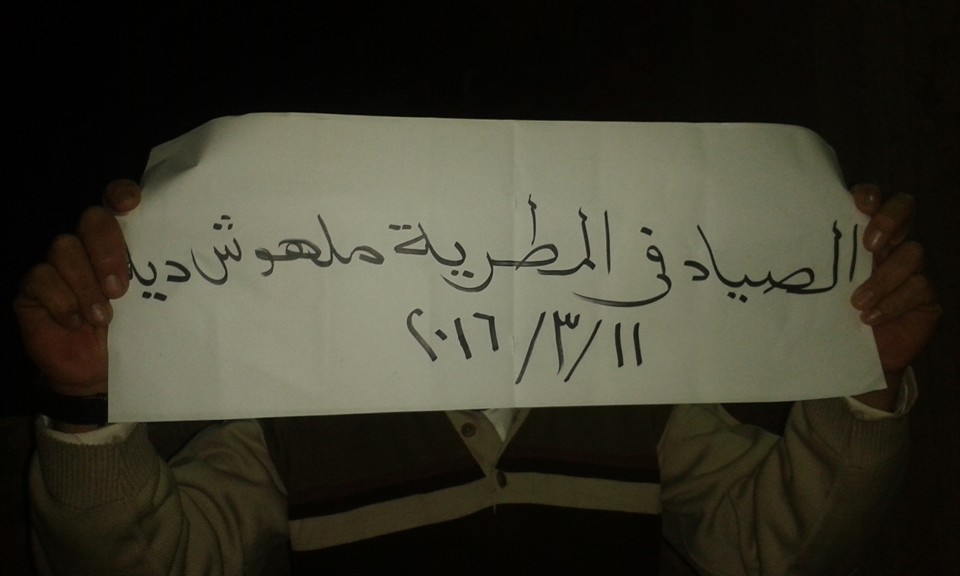 الصياد فى المطرية ملهوش ديه
٢٠١٦/٣/١١